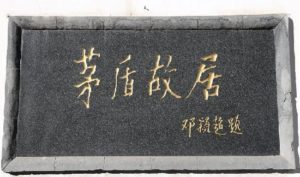 茅盾故居
邓颖超题